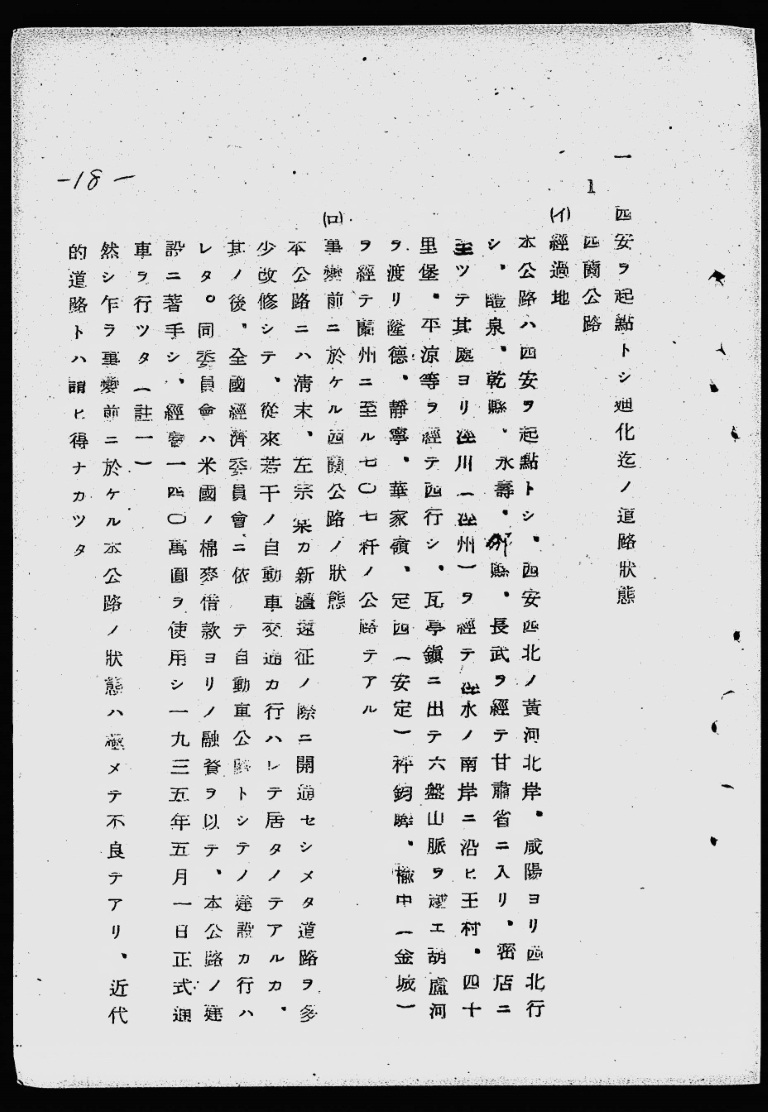 一 西安ヲ起點トシ廸化迄ノ道路狀態
1 西蘭公路
(イ) 經過地
本公路ハ西安ヲ起點トシ、西安西北ノ黃河北岸、咸陽ヨリ西北行
シ、醴泉、乾縣、永壽、邠縣、長武ヲ經テ甘肅省ニ入リ、窰店ニ
至ツテ其處ヨリ涇川(涇州)ヲ經テ涇水ノ南岸ニ沿ヒ王村、四十
里堡、平涼等ヲ經テ西行シ、瓦亭鎭ニ出テ六盤山脈ヲ越エ胡盧河
ヲ渡リ隆德、靜寧、華家嶺、定西(安定)秤鈎驛、楡中(金城)
ヲ經テ蘭州ニ至ル七〇七粁ノ公路テアル
(ロ) 事變前ニ於ケル西蘭公路ノ狀態
本公路ニハ淸末、左宗棠カ新疆遠征ノ際ニ開通セシメタ道路ヲ多
少改修シテ、從來若干ノ自動車交通カ行ハレテ居タノテアルカ、
其ノ後、全國經濟委員會ニ依 テ自動車公路トシテノ建設カ行ハ
レタ。同委員會ハ米國ノ棉麥借款ヨリノ融資ヲ以テ、本公路ノ建
設ニ著手シ、經費一四〇萬圓ヲ使用シ一九三五年五月一日正式通
車ヲ行ツタ(註一)
然シ乍ラ事變前ニ於ケル本公路ノ狀態ハ極メテ不良テアリ、近代
的道路トハ謂ヒ得ナカツタ
-18-